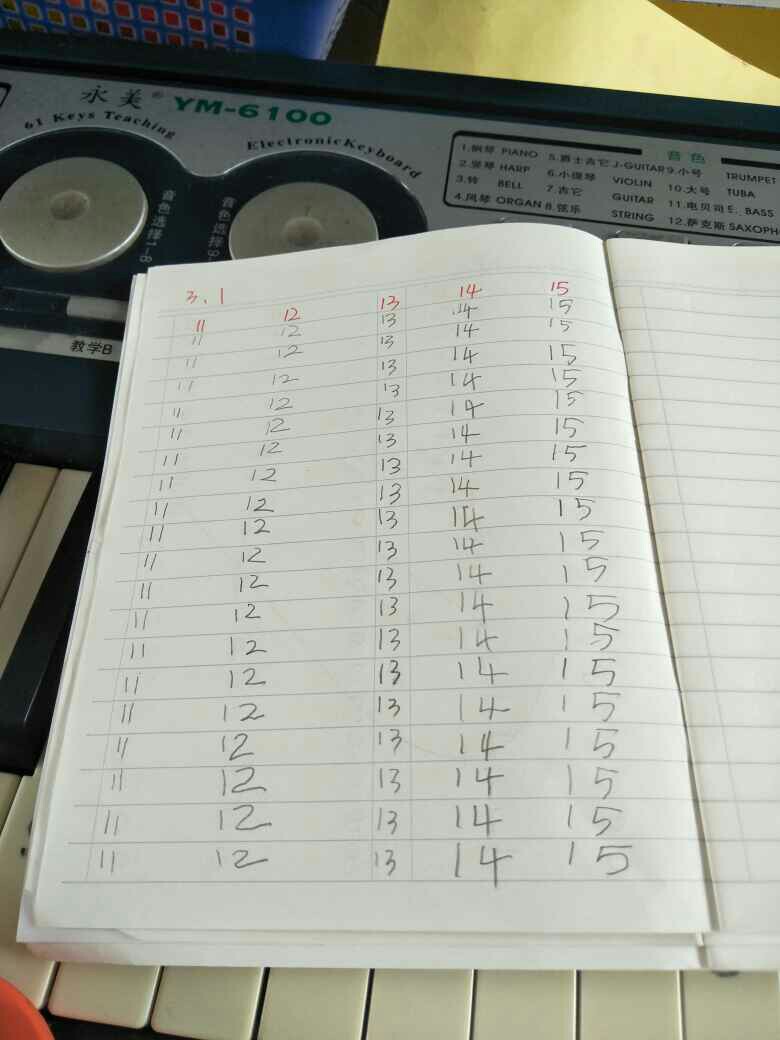 永美® YM-6100
61 Keys Teaching
ElectronicKeyboard
音色
1.钢琴 PIANO 5.爵士吉它 J-GUITAR 9.小号 TRUMPET
2.竖琴 HARP 6.小提琴 VIOLIN 10.大号 TUBA
3.铃 BELL 7.吉它 GUITAR 11.电贝司 E. BASS
4.风琴 ORGAN 8.弦乐 STRING 12.萨克斯 SAXOPH
音色选择1-8
音色选择9
教学B
3.1
11 12 13 14 15
11 12 13 14 15
11 12 13 14 15
11 12 13 14 15
11 12 13 14 15
11 12 13 14 15
11 12 13 14 15
11 12 13 14 15
11 12 13 14 15
11 12 13 14 15
11 12 13 14 15
11 12 13 14 15
11 12 13 14 15
11 12 13 14 15
11 12 13 14 15
11 12 13 14 15
11 12 13 14 15
11 12 13 14 15
11 12 13 14 15
11 12 13 14 15